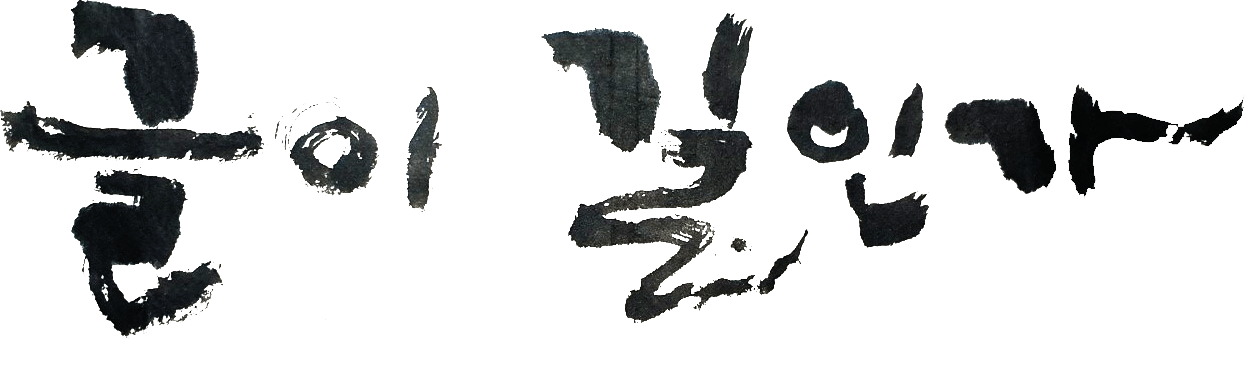 글이 길인가